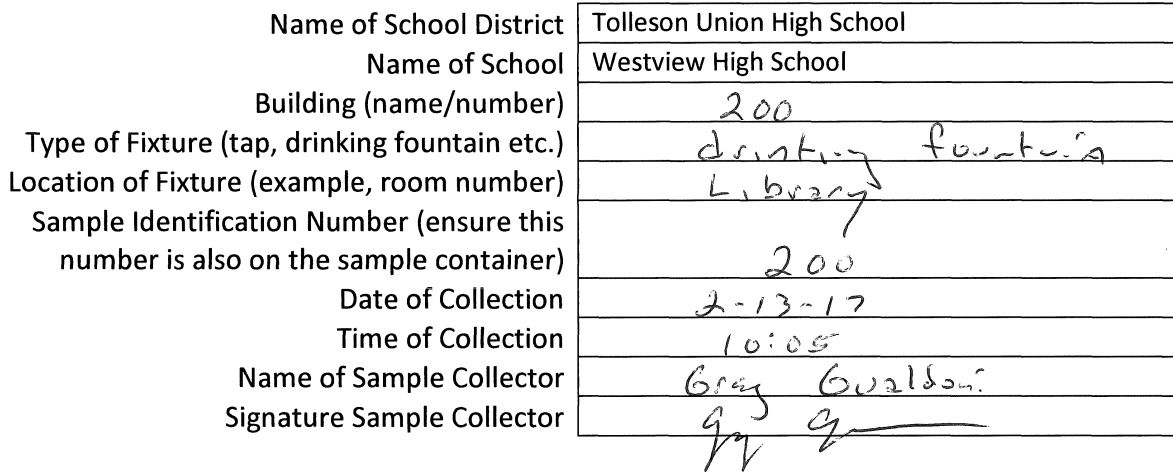 Name of School District Tolleson Union High School
Name of School Westview High School
Building (name/number) 200
Type of Fixture (tap, drinking fountain etc.) drinking fountain
Location of Fixture (example, room number) Library
Sample Identification Number (ensure this
number is also on the sample container) 200
Date of Collection 2-13-17
Time of Collection 10:05
Name of Sample Collector
Signature Sample Collector